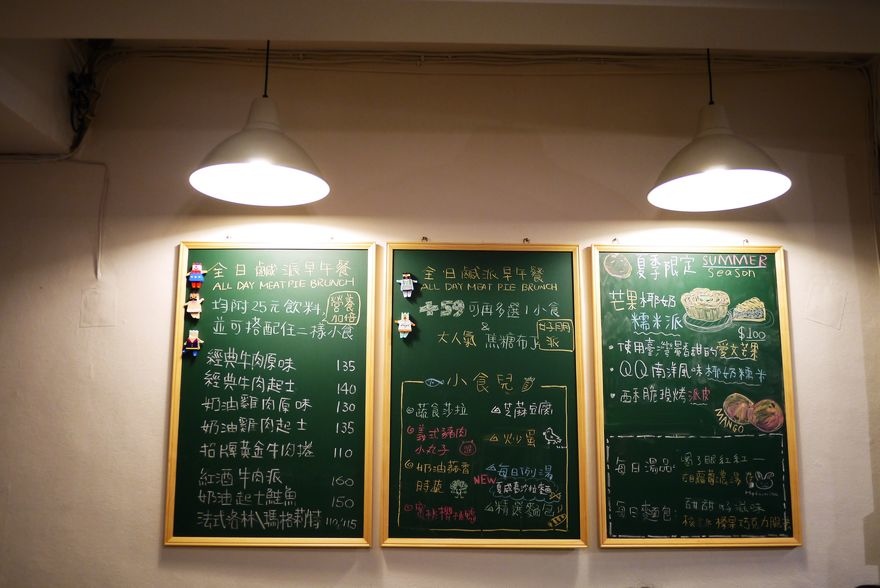 全日鹹派早午餐
ALL DAY MEAT PIE BRUNCH
均附25元飲料,
營養加倍
並可搭配任二樣小食
經典牛肉原味 135
經典牛肉起士 140
奶油雞肉原味 130
奶油雞肉起士 135
招牌黃金牛肉捲 110
紅酒牛肉派 160
奶油起士鮭魚 150
法式洛林\瑪格莉特 110/115
全日鹹派早午餐
ALL DAY MEAT PIE BRUNCH
+59 可再多選1小食
&
大人氣 焦糖布丁派
小食兒
蔬食莎拉
義式豬肉
小丸子
奶油蒜香
時蔬
芝麻豆腐
炒蛋
每日例湯
NEW
精選麵包
夏季限定 SUMMER
Season
芒果椰奶
糯米派
$100
•使用臺灣最甜的愛文芒果
•QQ南洋風味椰奶糯米
•酥脆現烤派皮
MANGO
每日湯品:
每日麵包: